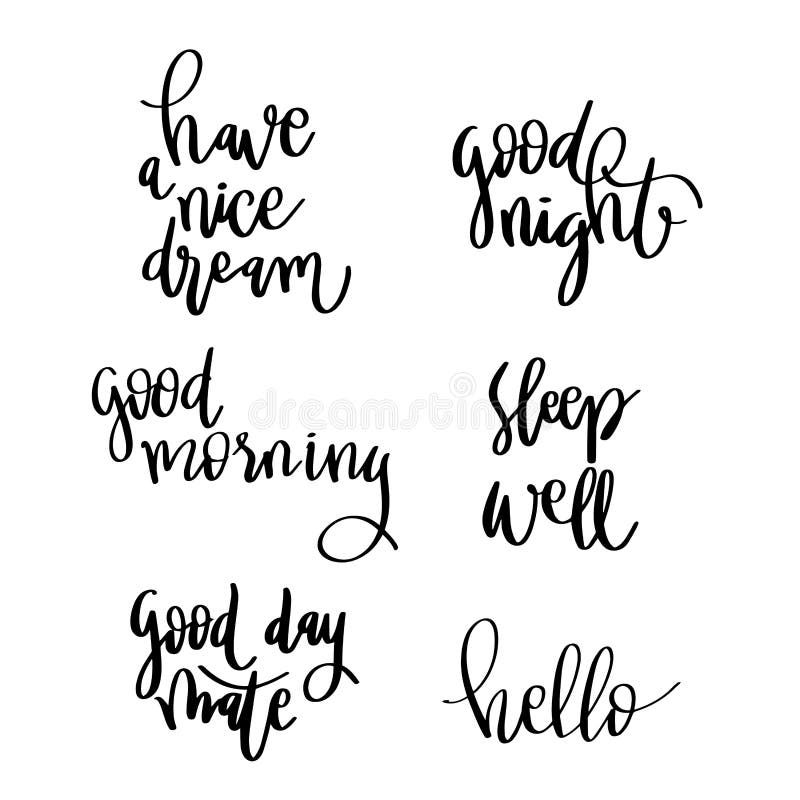 have
a
nice
dream
good
night
good
morning
sleep
well
good day
mate
hello
dreamstime